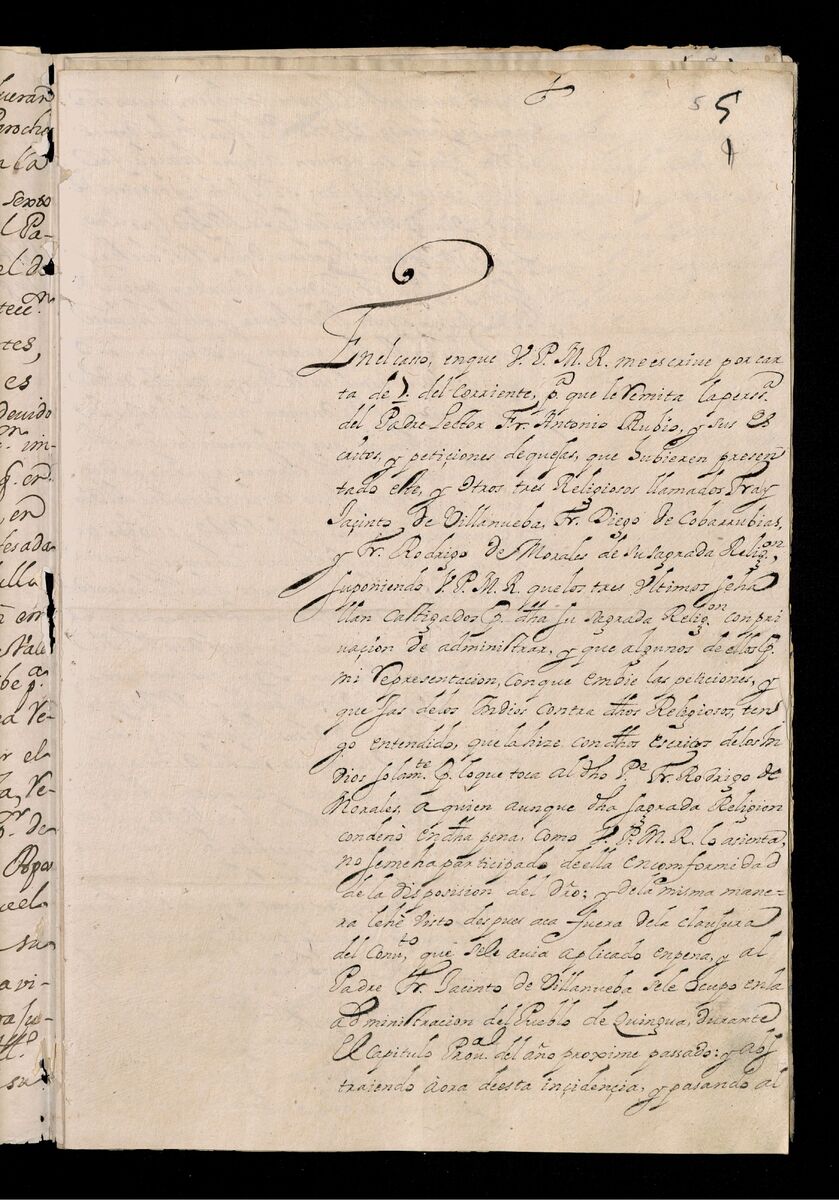 ueran
aroche
a la
sexto
l Pa-
el de
tecc.n
tes,
es
devido
en
esada
ulla
n en
Vale
ibe p.a
ed Ve-
r el
a, Ve-
r. de
uel
su
avi-
ra su-
su
5 5
En el casso, en que V. P. M. R. me escrive por car
ta de 7. del Corriente, p.a que le remita la perss.a
del Padre Lector Fr. Antonio Rubio, y sus es
critos, y petiçiones de quejas, que hubieren presen
tado este, y otros tres Religiosos llamados Fray
Jaçinto de Villanueba, Fr. Diego de Cobarrubias,
y Fr. Rodrigo de Morales de su sagrada Relig.on,
suponiendo V. P. M. R. que los tres ultimos se ha
llan castigados p. dha su sagrada Relig.on con pri
vaçion de administrar, y que algunos de ellos p.
mi representacion, con que embie las petiçiones, y
quejas de los Indios contra dhos Religiosos, ten
go entendido, que la hize con dhos escritos de los In
dios solam.te p. lo que toca al dho P.e Fr. Rodrigo de
Morales, a quien aunque dha sagrada Religion
condenò en dha pena, como V. P. M. R. lo asienta,
no se me ha participado de ella en comformidad
de la disposiçion del Dro; y de la misma mane-
ra le hè visto despues aca fuera de la clausura
del Conv.to, que se le avia aplicado en pena, y al
Padre Fr. Jacinto de Villanueba se le ocupo en la
administracion del Pueblo de Quingua, durante
el Capitulo Prov.al del año proximo passado: y abs
traiendo àora de esta inçidençia, y pasando al